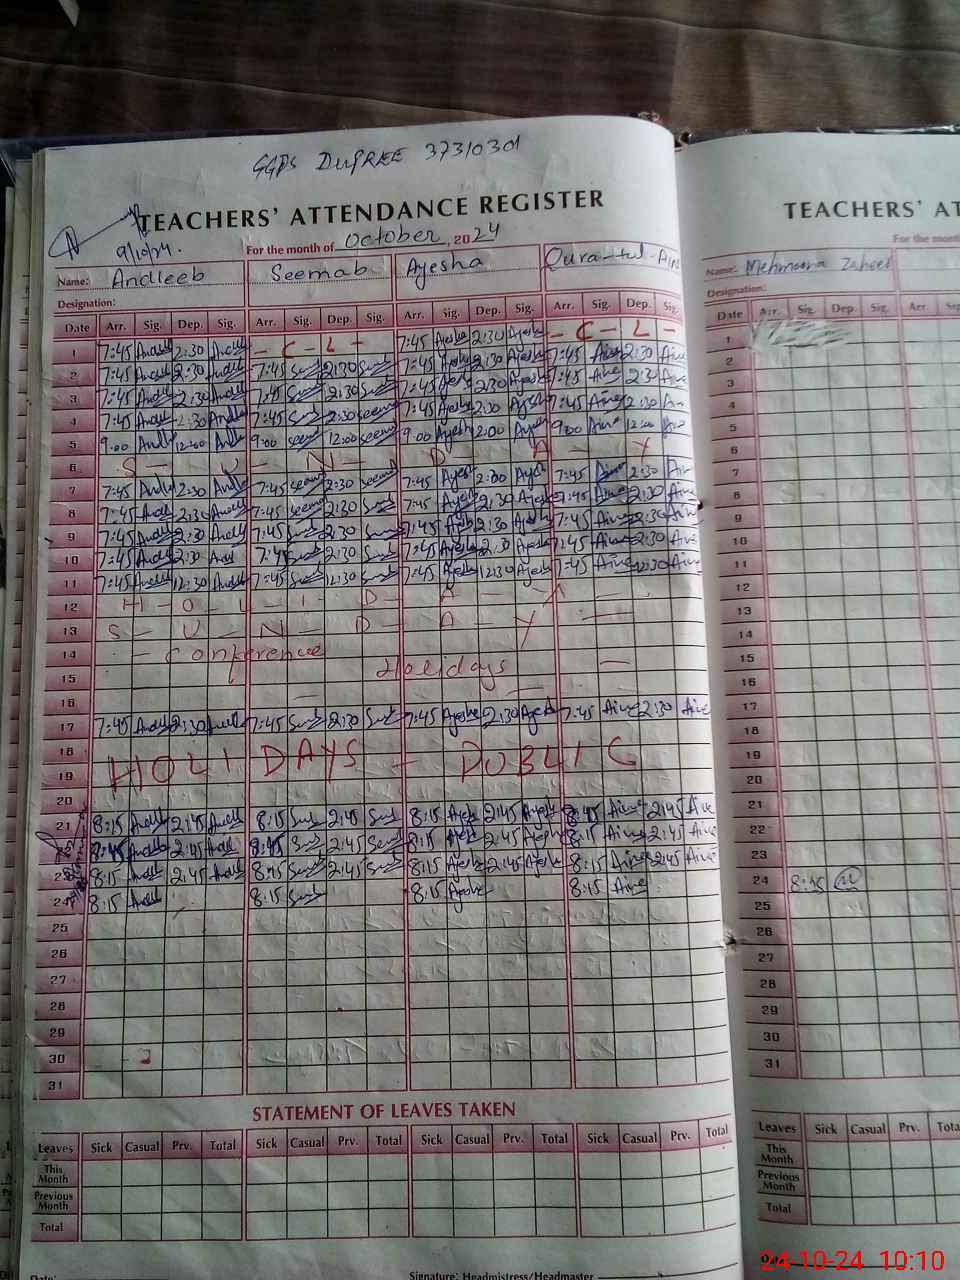 GGPS DUPREE 37310301
TEACHERS' ATTENDANCE REGISTER
TEACHERS' AT
9/10/24.
For the month of October, 2024
For the month
Name: Andleeb Seemab Ayesha Qurat-ul-Ain
Name: Mehmoona Zaheer
Designation:
Designation:
Date Arr. Sig. Dep. Sig. Arr. Sig. Dep. Sig. Arr. Sig. Dep. Sig. Arr. Sig. Dep. Sig.
Date Arr. Sig. Dep. Sig. Arr. Sig
1 7:45 Andl 2:30 Andl - C - L - 7:45 Ayesha 2:30 Ayesha - C - L -
2 7:45 Andl 2:30 Andl 7:45 2:30 7:45 Ayesha 2:30 Ayesha 7:45 Aine 2:30 Aine
3 7:45 Andl 2:30 Andl 7:45 2:30 7:45 Ayesha 2:30 Ayesha 7:45 Aine 2:30 Aine
4 7:45 Andl 2:30 Andl 7:45 2:30 Seema 7:45 Ayesha 2:30 Ayesha 7:45 Aine 2:30 Aine
5 9:00 Andl 12:00 Andl 9:00 Seem 12:00 Seem 9:00 Ayesha 12:00 Ayesha 9:00 Aine 12:00 Aine
6 S - U - N - D - A - Y
7 7:45 Andl 2:30 Andl 7:45 Seem 2:30 Seem 7:45 Ayesha 2:30 Ayesha 7:45 Aine 2:30 Aine
8 7:45 Andl 2:30 Andl 7:45 Seem 2:30 7:45 Ayesha 2:30 Ayesha 7:45 Aine 2:30 Aine
9 7:45 Andl 2:30 Andl 7:45 2:30 7:45 Ayesha 2:30 Ayesha 7:45 Aine 2:30 Aine
10 7:45 Andl 2:30 Andl 7:45 2:30 7:45 Ayesha 2:30 Ayesha 7:45 Aine 2:30 Aine
11 7:45 Andl 12:30 Andl 7:45 12:30 7:45 Ayesha 12:30 Ayesha 7:45 Aine 12:30 Aine
12 H - O - L - I - D - A - Y -
13 S - U - N - D - A - Y -
14 - Conference
15 Holidays -
16
17 7:45 Andl 2:30 Andl 7:45 2:30 7:45 Ayesha 2:30 Ayesha 7:45 Aine 2:30 Aine
18
19 HOLIDAYS - PUBLIC
20
21 8:15 Andl 2:45 Andl 8:15 2:45 8:15 Ayesha 2:45 Ayesha 8:45 Aine 2:45 Aine
8:45 Andl 2:45 Andl 8:45 2:45 8:15 2:45 Ayesha 8:15 Aine 2:45 Aine
8:15 Andl 2:45 Andl 8:45 2:45 8:15 Ayesha 2:45 Ayesha 8:15 Aine 2:45 Aine
24 8:15 Andl 8:15 8:15 Ayesha 8:15 Aine
25
26
27
28
29
30
31
1
2
3
4
5
6
7
8
9
10
11
12
13
14
15
16
17
18
19
20
21
22
23
24 8:45
25
26
27
28
29
30
31
STATEMENT OF LEAVES TAKEN
Leaves Sick Casual Prv. Total Sick Casual Prv. Total Sick Casual Prv. Total Sick Casual Prv. Total
This Month
Previous Month
Total
Leaves Sick Casual Prv. Tota
This Month
Previous Month
Total
Date:
Signature: Headmistress/Headmaster
24-10-24 10:10